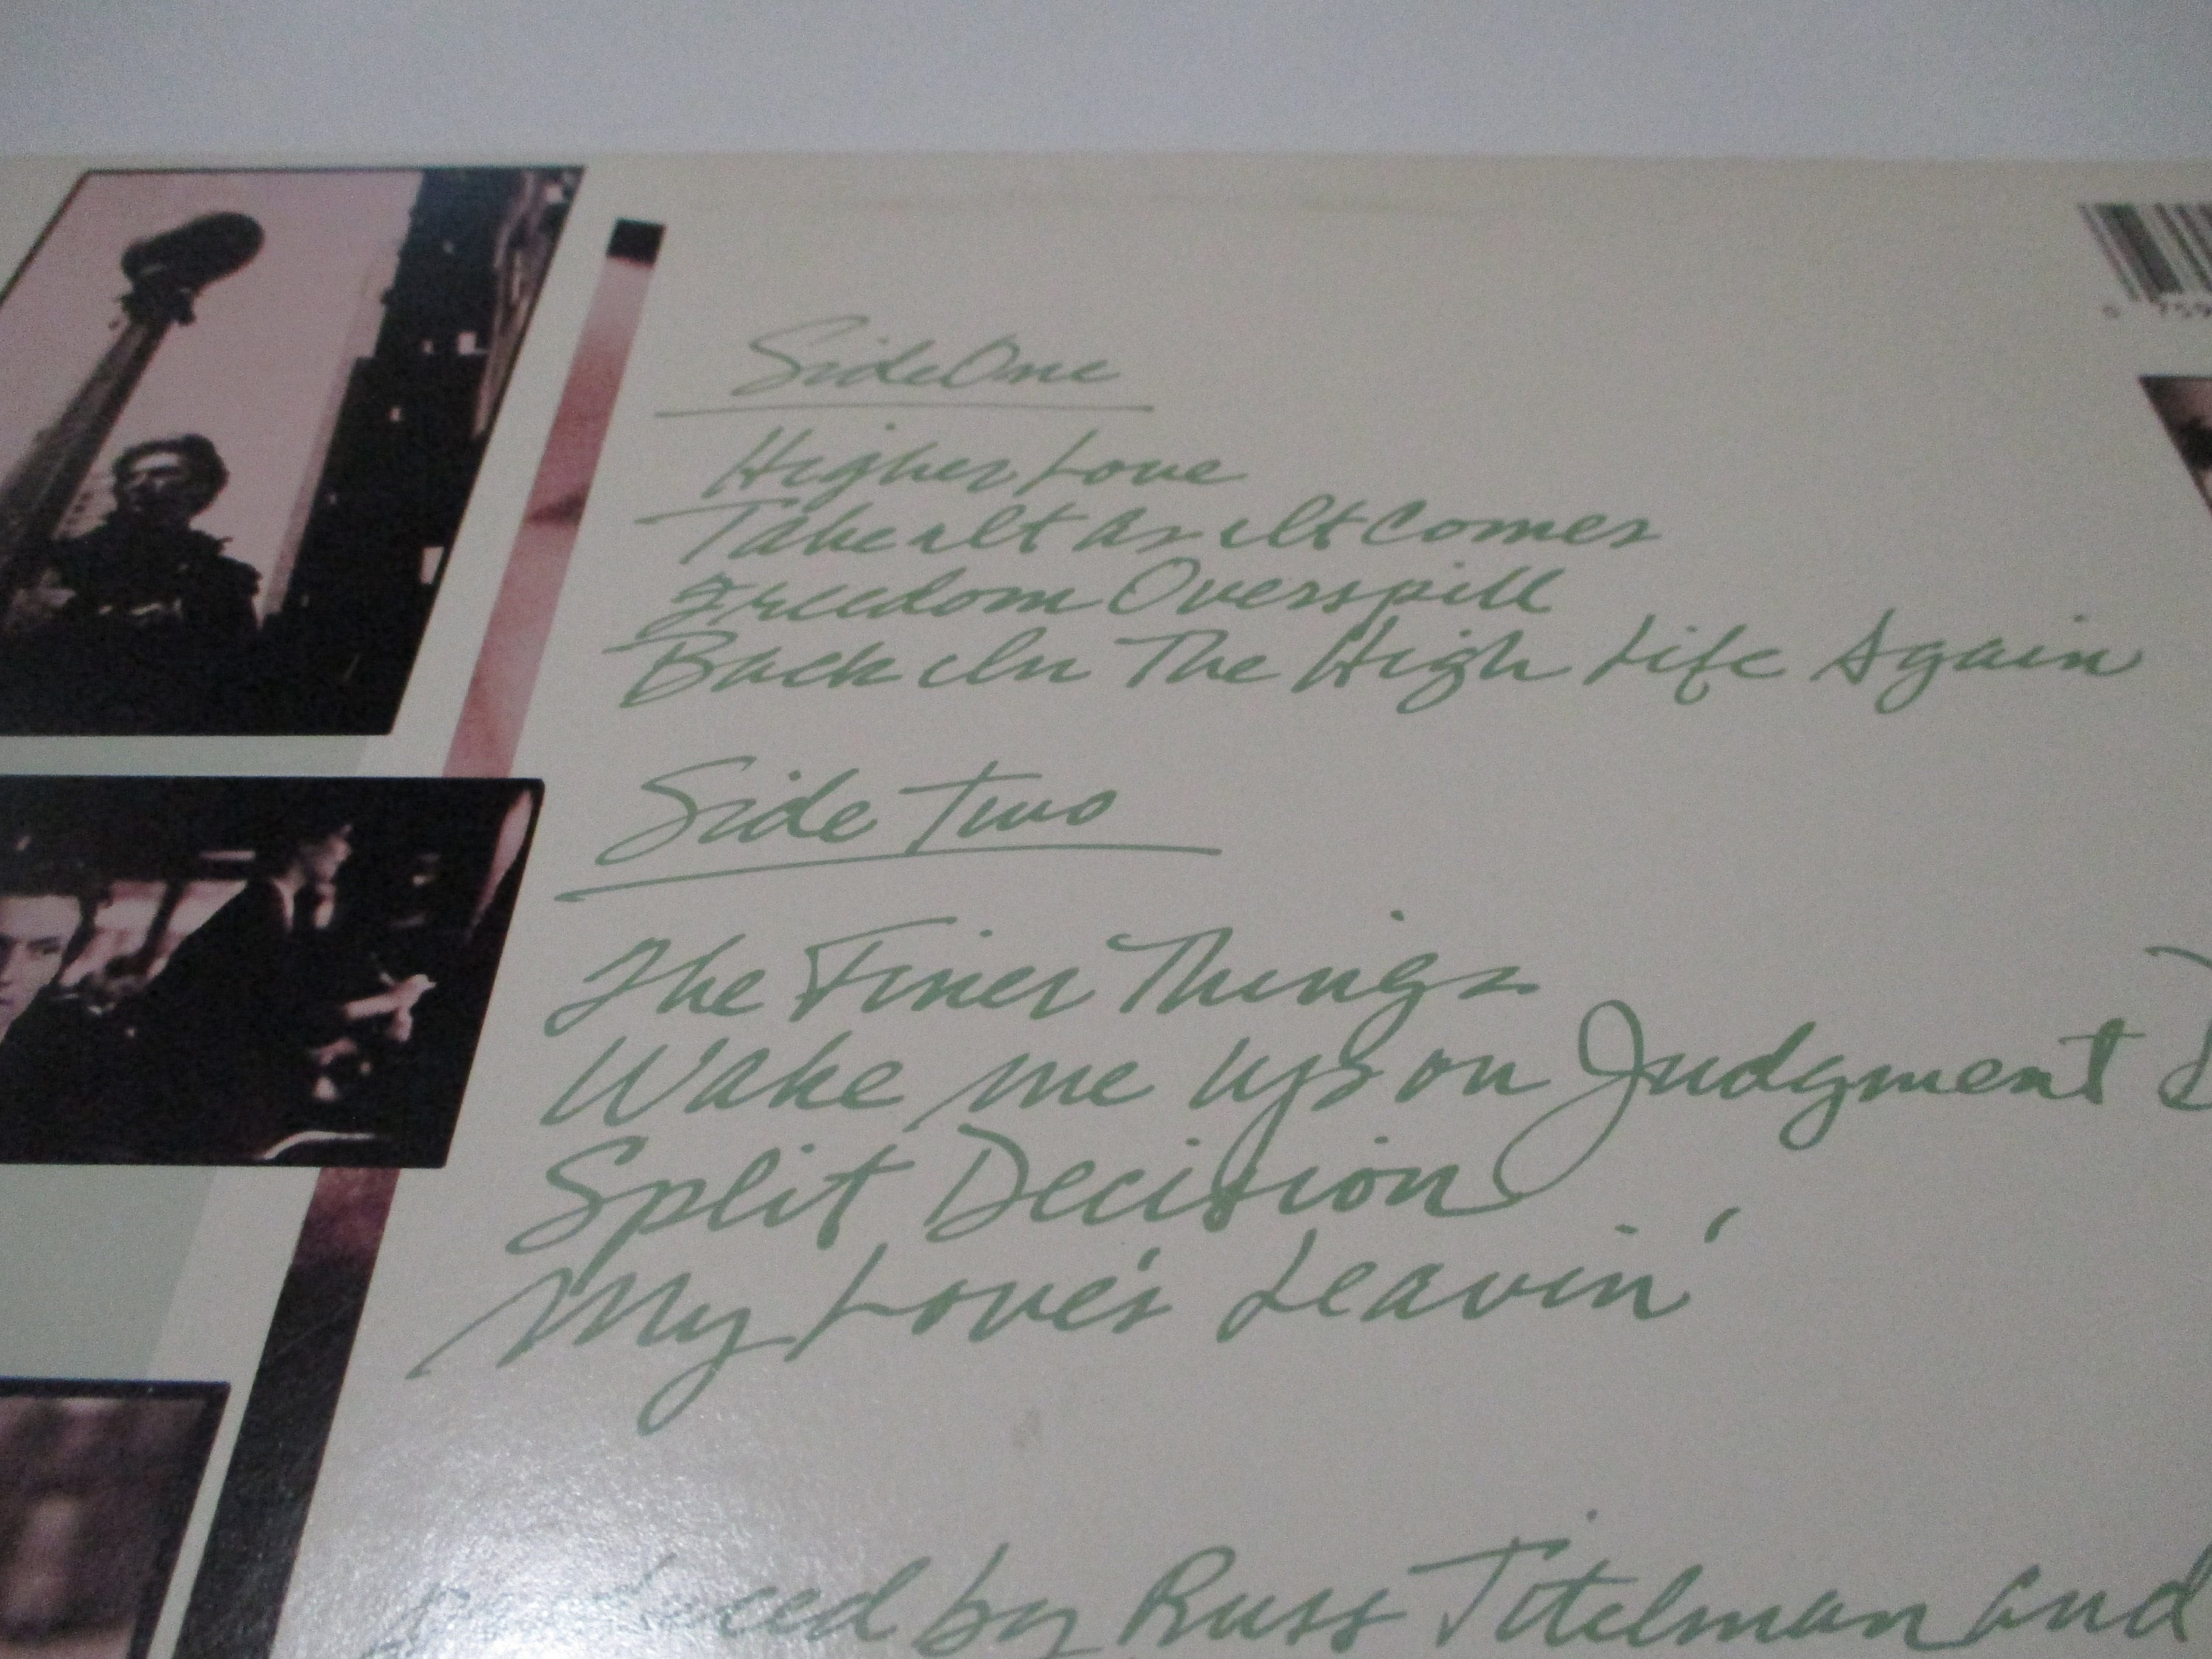 Side One
Higher Love
Take It As It Comes
Freedom Overspill
Back In The High Life Again
Side Two
The Finer Things
Wake me up on Judgment D
Split Decision
My Love's Leavin'
by Russ Titelman and